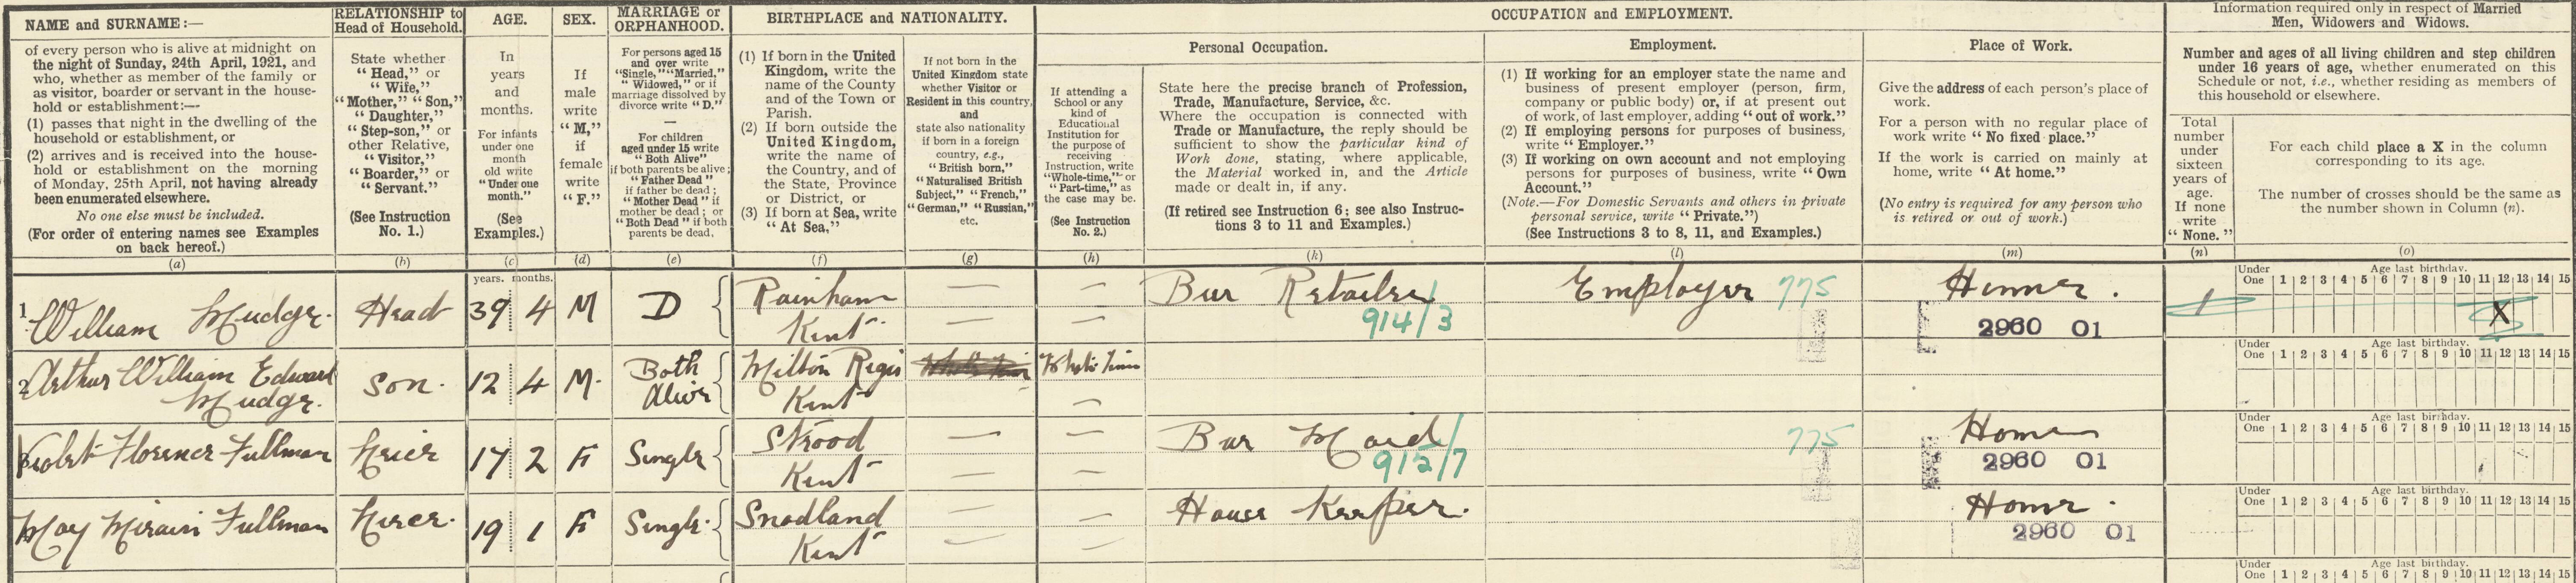 NAME and SURNAME:—
of every person who is alive at midnight on
the night of Sunday, 24th April, 1921, and
who, whether as member of the family or
as visitor, boarder or servant in the house-
hold or establishment:—
(1) passes that night in the dwelling of the
household or establishment, or
(2) arrives and is received into the house-
hold or establishment on the morning
of Monday, 25th April, not having already
been enumerated elsewhere.
No one else must be included.
(For order of entering names see Examples
on back hereof.)
(a)
RELATIONSHIP to
Head of Household.
State whether
"Head," or
"Wife,"
"Mother," "Son,"
"Daughter,"
"Step-son," or
other Relative,
"Visitor,"
"Boarder," or
"Servant."
(See Instruction
No. 1.)
(b)
AGE.
In
years
and
months.
For infants
under one
month
old write
"Under one
month."
(See
Examples.)
(c)
SEX.
If
male
write
"M,"
if
female
write
"F."
(d)
MARRIAGE or
ORPHANHOOD.
For persons aged 15
and over write
"Single," "Married,"
"Widowed," or if
marriage dissolved by
divorce write "D."
—
For children
aged under 15 write
"Both Alive"
if both parents be alive;
"Father Dead"
if father be dead;
"Mother Dead" if
mother be dead; or
"Both Dead" if both
parents be dead.
(e)
BIRTHPLACE and NATIONALITY.
(1) If born in the United
Kingdom, write the
name of the County
and of the Town or
Parish.
(2) If born outside the
United Kingdom,
write the name of
the Country, and of
the State, Province
or District, or
(3) If born at Sea, write
"At Sea,"
(f)
If not born in the
United Kingdom state
whether Visitor or
Resident in this country,
and
state also nationality
if born in a foreign
country, e.g.,
"British born,"
"Naturalised British
Subject," "French,"
"German," "Russian,"
etc.
(g)
OCCUPATION and EMPLOYMENT.
If attending a
School or any
kind of
Educational
Institution for
the purpose of
receiving
Instruction, write
"Whole-time," or
"Part-time," as
the case may be.
(See Instruction
No. 2.)
(h)
Personal Occupation.
State here the precise branch of Profession,
Trade, Manufacture, Service, &c.
Where the occupation is connected with
Trade or Manufacture, the reply should be
sufficient to show the particular kind of
Work done, stating, where applicable,
the Material worked in, and the Article
made or dealt in, if any.
(If retired see Instruction 6; see also Instruc-
tions 3 to 11 and Examples.)
(k)
Employment.
(1) If working for an employer state the name and
business of present employer (person, firm,
company or public body) or, if at present out
of work, of last employer, adding "out of work."
(2) If employing persons for purposes of business,
write "Employer."
(3) If working on own account and not employing
persons for purposes of business, write "Own
Account."
(Note.—For Domestic Servants and others in private
personal service, write "Private.")
(See Instructions 3 to 8, 11, and Examples.)
(l)
Place of Work.
Give the address of each person's place of
work.
For a person with no regular place of
work write "No fixed place."
If the work is carried on mainly at
home, write "At home."
(No entry is required for any person who
is retired or out of work.)
(m)
Information required only in respect of Married
Men, Widowers and Widows.
Number and ages of all living children and step children
under 16 years of age, whether enumerated on this
Schedule or not, i.e., whether residing as members of
this household or elsewhere.
Total
number
under
sixteen
years of
age.
If none
write
"None."
(n)
For each child place a X in the column
corresponding to its age.
The number of crosses should be the same as
the number shown in Column (n).
(o)
years. months.
1 William Mudge. Head 39 4 M D Rainham — — Beer Retailer Employer 775 Home. 1 X
Kent — — 914/3 2960 01
Under One Age last birthday. 1 2 3 4 5 6 7 8 9 10 11 12 13 14 15
2 Arthur William Edward Son. 12 4 M. Both Milton Regis Whole Time Whole Time
Mudge. Alive Kent —
Under One Age last birthday. 1 2 3 4 5 6 7 8 9 10 11 12 13 14 15
Violet Florence Fullman 17 2 F Single Strood — — Bar Maid 775 Home
Kent — — 912/7 2960 01
Under One Age last birthday. 1 2 3 4 5 6 7 8 9 10 11 12 13 14 15
May Fullman 19 1 F Single. Snodland — — House Keeper. Home.
Kent — — 2960 01
Under One Age last birthday. 1 2 3 4 5 6 7 8 9 10 11 12 13 14 15
Under One Age last birthday. 1 2 3 4 5 6 7 8 9 10 11 12 13 14 15